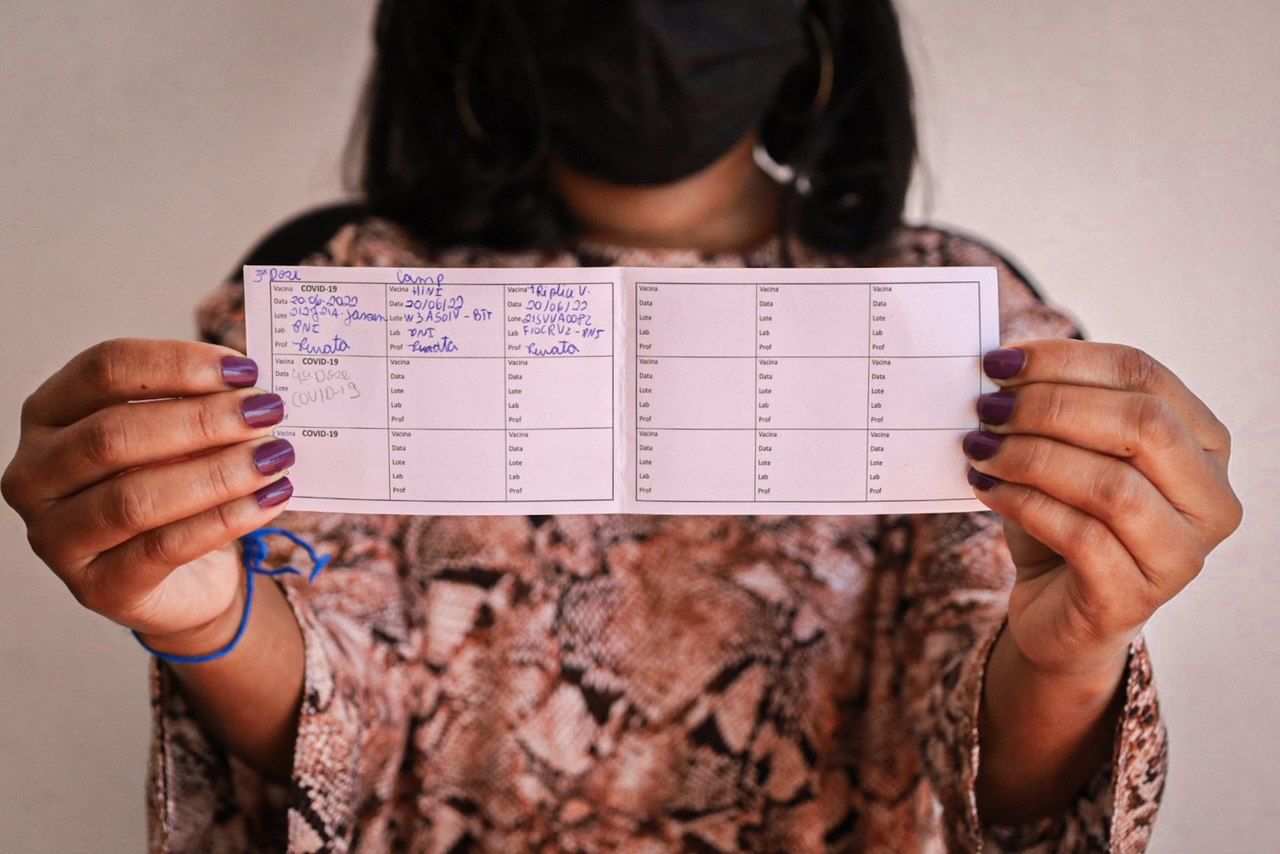 3ª Dose
Camp
Vacina COVID-19
Data 20-06-2022
Lote 212J21A-Janssen
Lab PNI
Prof Renata
Vacina H1N1
Data 20/06/22
Lote
Lab PNI
Prof Renata
Vacina Tríplice V.
Data 20/06/22
Lote 215VVA008Z
Lab FIOCRUZ-PNI
Prof Renata
Vacina
Data
Lote
Lab
Prof
Vacina
Data
Lote
Lab
Prof
Vacina
Data
Lote
Lab
Prof
Vacina COVID-19
Data 4ª Dose
Lote COVID-19
Vacina
Data
Lote
Lab
Prof
Vacina
Data
Lote
Lab
Prof
Vacina
Data
Lote
Lab
Prof
Vacina
Data
Lote
Lab
Prof
Vacina
Data
Lote
Lab
Prof
Vacina COVID-19
Vacina
Data
Lote
Lab
Prof
Vacina
Data
Lote
Lab
Prof
Vacina
Data
Lote
Lab
Prof
Vacina
Data
Lote
Lab
Prof
Vacina
Data
Lote
Lab
Prof